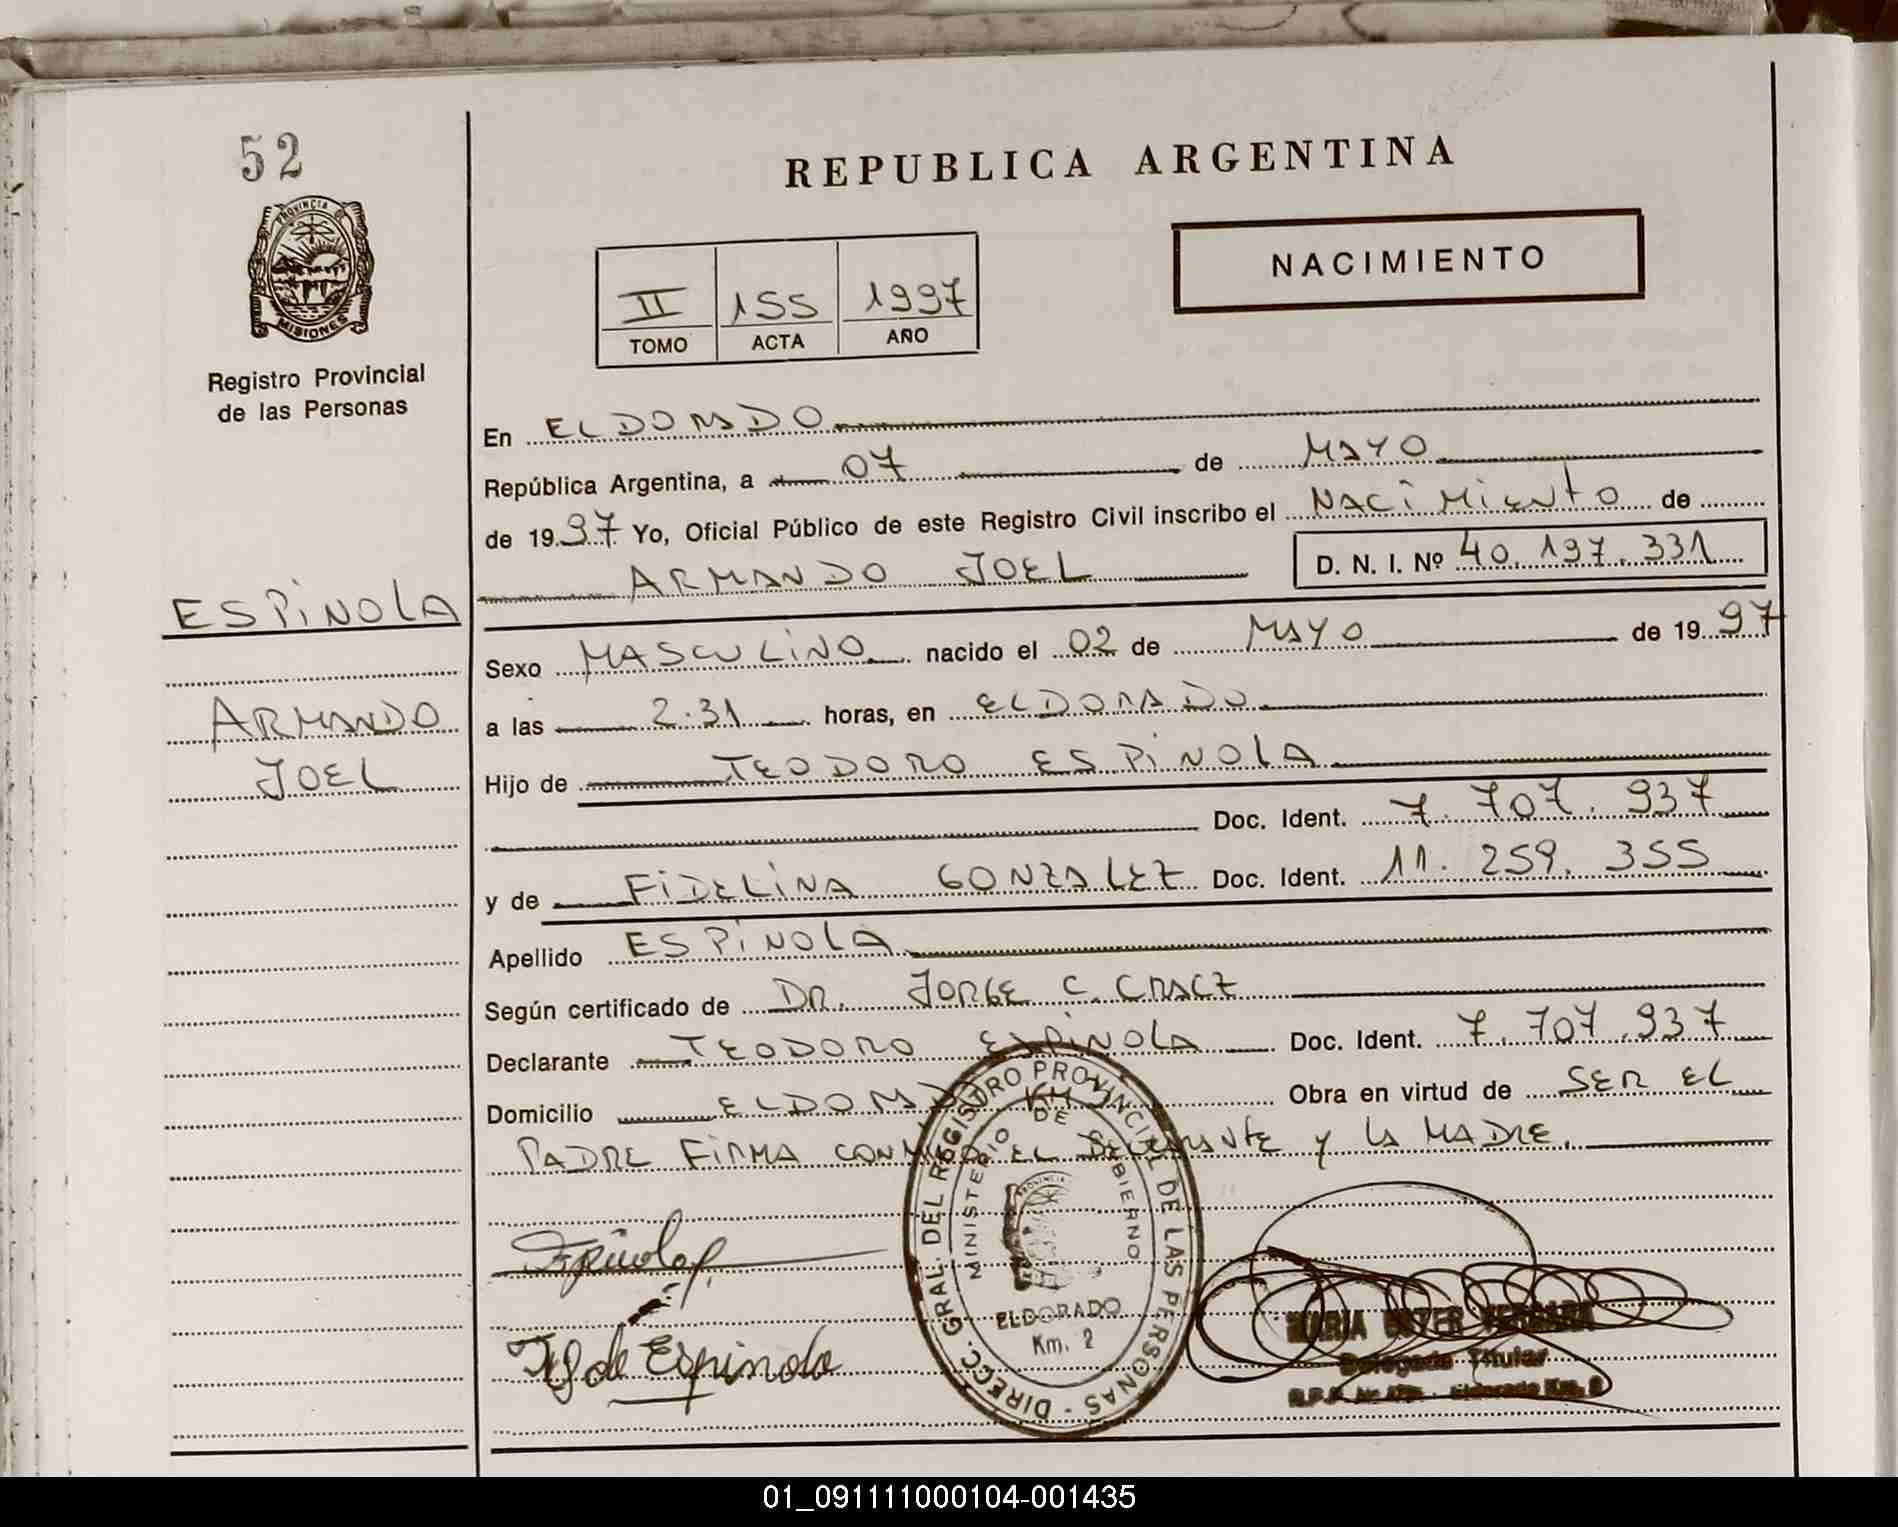 52
PROVINCIA DE
MISIONES
Registro Provincial
de las Personas
REPUBLICA ARGENTINA
NACIMIENTO
II 155 1997
TOMO ACTA AÑO
En ELDORADO
República Argentina, a 07 de MAYO
de 1997 Yo, Oficial Público de este Registro Civil inscribo el NACIMIENTO de
ARMANDO JOEL D. N. I. Nº 40.197.331
ESPINOLA
ARMANDO
JOEL
Sexo MASCULINO nacido el 02 de MAYO de 1997
a las 2.31 horas, en ELDORADO
Hijo de TEODORO ESPINOLA
Doc. Ident. 7.707.937
y de FIDELINA GONZALEZ Doc. Ident. 11.259.355
Apellido ESPINOLA
Según certificado de DR. JORGE C.
Declarante TEODORO ESPINOLA Doc. Ident. 7.707.937
Domicilio ELDORADO KM Obra en virtud de SER EL
PADRE FIRMA CONMIGO EL DECLARANTE y LA MADRE.
DIRECC. GRAL. DEL REGISTRO PROVINCIAL DE LAS PERSONAS -
MINISTERIO DE GOBIERNO
PROVINCIA
ELDORADO
Km. 2
Espinola
de Espinola
MARIA
Delegada Titular
Eldorado Km. 2
01_091111000104-001435